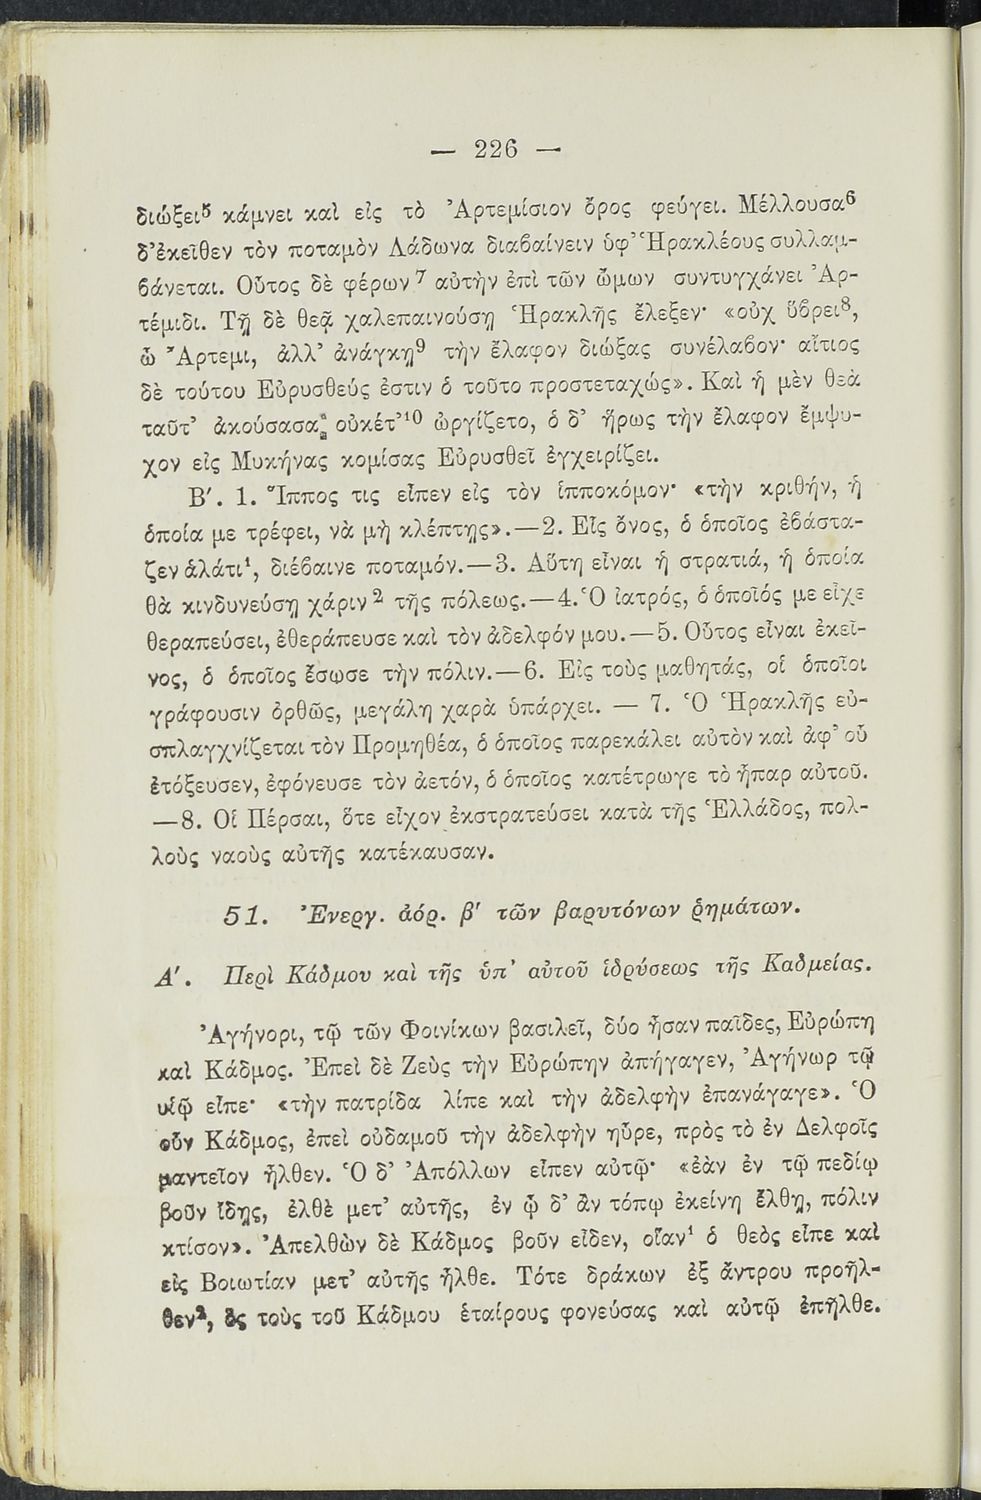 — 226 —
διώξει⁵ κάμνει καὶ εἰς τὸ Ἀρτεμίσιον ὄρος φεύγει. Μέλλουσα⁶
δ' ἐκεῖθεν τὸν ποταμὸν Λάδωνα διαβαίνειν ὑφ' Ἡρακλέους συλλαμ-
βάνεται. Οὗτος δὲ φέρων⁷ αὐτὴν ἐπὶ τῶν ὤμων συντυγχάνει Ἀρ-
τέμιδι. Τῇ δὲ θεᾷ χαλεπαινούσῃ Ἡρακλῆς ἔλεξεν· «οὐχ ὕβρει⁸,
ὦ Ἄρτεμι, ἀλλ' ἀνάγκῃ⁹ τὴν ἔλαφον διώξας συνέλαβον· αἴτιος
δὲ τούτου Εὐρυσθεύς ἐστιν ὁ τοῦτο προστεταχώς». Καὶ ἡ μὲν θεὰ
ταῦτ' ἀκούσασα οὐκέτ'¹⁰ ὠργίζετο, ὁ δ' ἥρως τὴν ἔλαφον ἔμψυ-
χον εἰς Μυκήνας κομίσας Εὐρυσθεῖ ἐγχειρίζει.
Β′. 1. Ἵππος τις εἶπεν εἰς τὸν ἱπποκόμον· «τὴν κριθήν, ἡ
ὁποία με τρέφει, νὰ μὴ κλέπτῃς».—2. Εἷς ὄνος, ὁ ὁποῖος ἐβάστα-
ζεν ἁλάτι¹, διέβαινε ποταμόν.—3. Αὕτη εἶναι ἡ στρατιά, ἡ ὁποία
θὰ κινδυνεύσῃ χάριν² τῆς πόλεως.—4. Ὁ ἰατρός, ὁ ὁποῖός με εἶχε
θεραπεύσει, ἐθεράπευσε καὶ τὸν ἀδελφόν μου.—5. Οὗτος εἶναι ἐκεῖ-
νος, ὁ ὁποῖος ἔσωσε τὴν πόλιν.—6. Εἰς τοὺς μαθητάς, οἱ ὁποῖοι
γράφουσιν ὀρθῶς, μεγάλη χαρὰ ὑπάρχει. — 7. Ὁ Ἡρακλῆς εὐ-
σπλαγχνίζεται τὸν Προμηθέα, ὁ ὁποῖος παρεκάλει αὐτὸν καὶ ἀφ' οὗ
ἐτόξευσεν, ἐφόνευσε τὸν ἀετόν, ὁ ὁποῖος κατέτρωγε τὸ ἧπαρ αὐτοῦ.
—8. Οἱ Πέρσαι, ὅτε εἶχον ἐκστρατεύσει κατὰ τῆς Ἑλλάδος, πολ-
λοὺς ναοὺς αὐτῆς κατέκαυσαν.
51. Ἐνεργ. ἀόρ. β′ τῶν βαρυτόνων ῥημάτων.
Α′. Περὶ Κάδμου καὶ τῆς ὑπ' αὐτοῦ ἱδρύσεως τῆς Καδμείας.
Ἀγήνορι, τῷ τῶν Φοινίκων βασιλεῖ, δύο ἦσαν παῖδες, Εὐρώπη
καὶ Κάδμος. Ἐπεὶ δὲ Ζεὺς τὴν Εὐρώπην ἀπήγαγεν, Ἀγήνωρ τῷ
υἱῷ εἶπε· «τὴν πατρίδα λίπε καὶ τὴν ἀδελφὴν ἐπανάγαγε». Ὁ
οὖν Κάδμος, ἐπεὶ οὐδαμοῦ τὴν ἀδελφὴν ηὗρε, πρὸς τὸ ἐν Δελφοῖς
μαντεῖον ἦλθεν. Ὁ δ' Ἀπόλλων εἶπεν αὐτῷ· «ἐὰν ἐν τῷ πεδίῳ
βοῦν ἴδῃς, ἐλθὲ μετ' αὐτῆς, ἐν ᾧ δ' ἂν τόπῳ ἐκείνη ἔλθῃ, πόλιν
κτίσον». Ἀπελθὼν δὲ Κάδμος βοῦν εἶδεν, οἵαν¹ ὁ θεὸς εἶπε καὶ
εἰς Βοιωτίαν μετ' αὐτῆς ἦλθε. Τότε δράκων ἐξ ἄντρου προῆλ-
θεν², ὃς τοὺς τοῦ Κάδμου ἑταίρους φονεύσας καὶ αὐτῷ ἐπῆλθε.